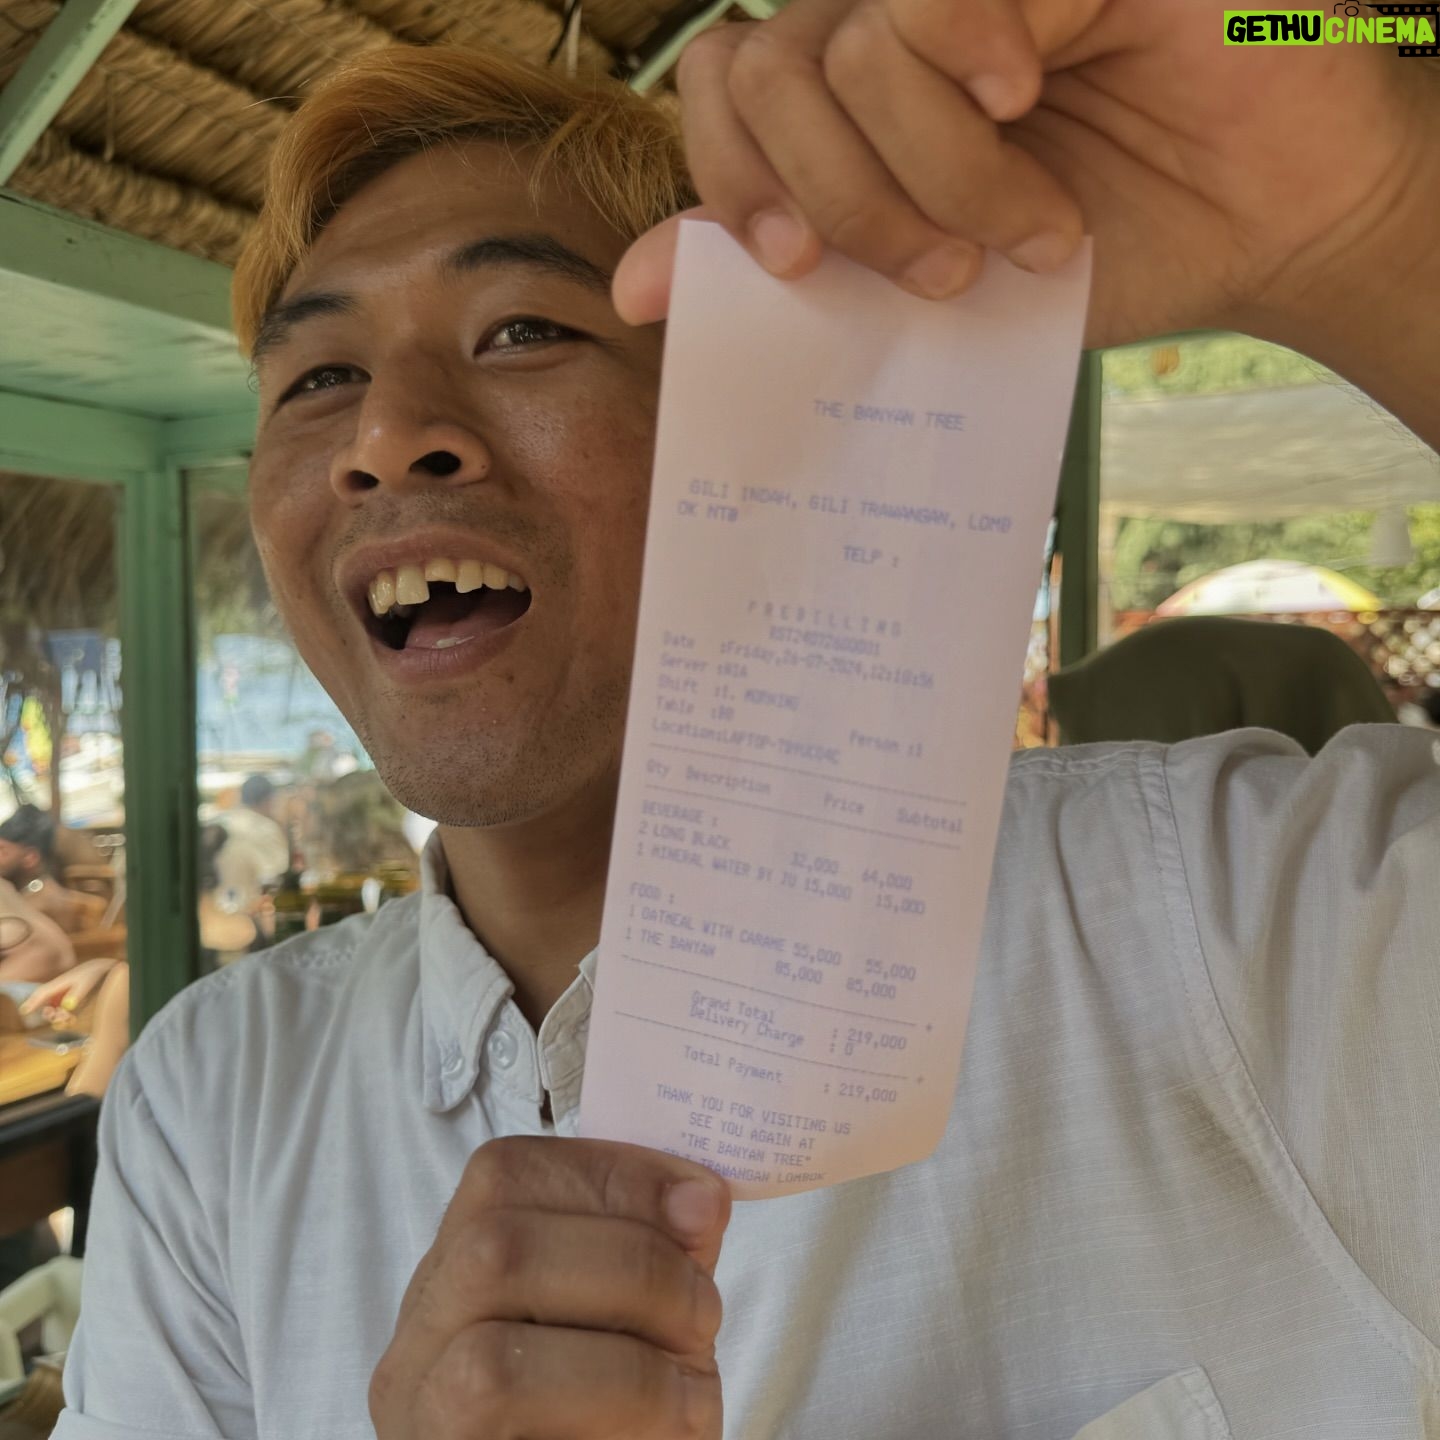 GETHUCINEMA
THE BANYAN TREE
GILI INDAH, GILI TRAWANGAN, LOMB
OK NTB
TELP :
PREBILLING
RST24072600031
Date :Friday,26-07-2024,12:18:56
Server :NIA
Shift :1. MORNING
Table :
Person :1
Qty Description Price Subtotal
BEVERAGE :
2 LONG BLACK 32,000 64,000
1 MINERAL WATER BY IU 15,000 15,000
FOOD :
1 OATMEAL WITH CARAME 55,000 55,000
1 THE BANYAN 85,000 85,000
Grand Total : 219,000
Delivery Charge : 0
Total Payment : 219,000
THANK YOU FOR VISITING US
SEE YOU AGAIN AT
"THE BANYAN TREE"
GILI TRAWANGAN LOMBOK